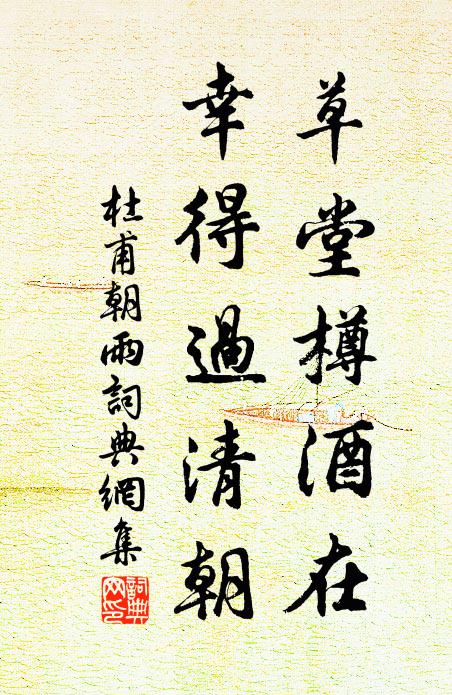 草堂樽酒在
幸得過清朝
杜甫朝雨詞典網集
詞典
网印